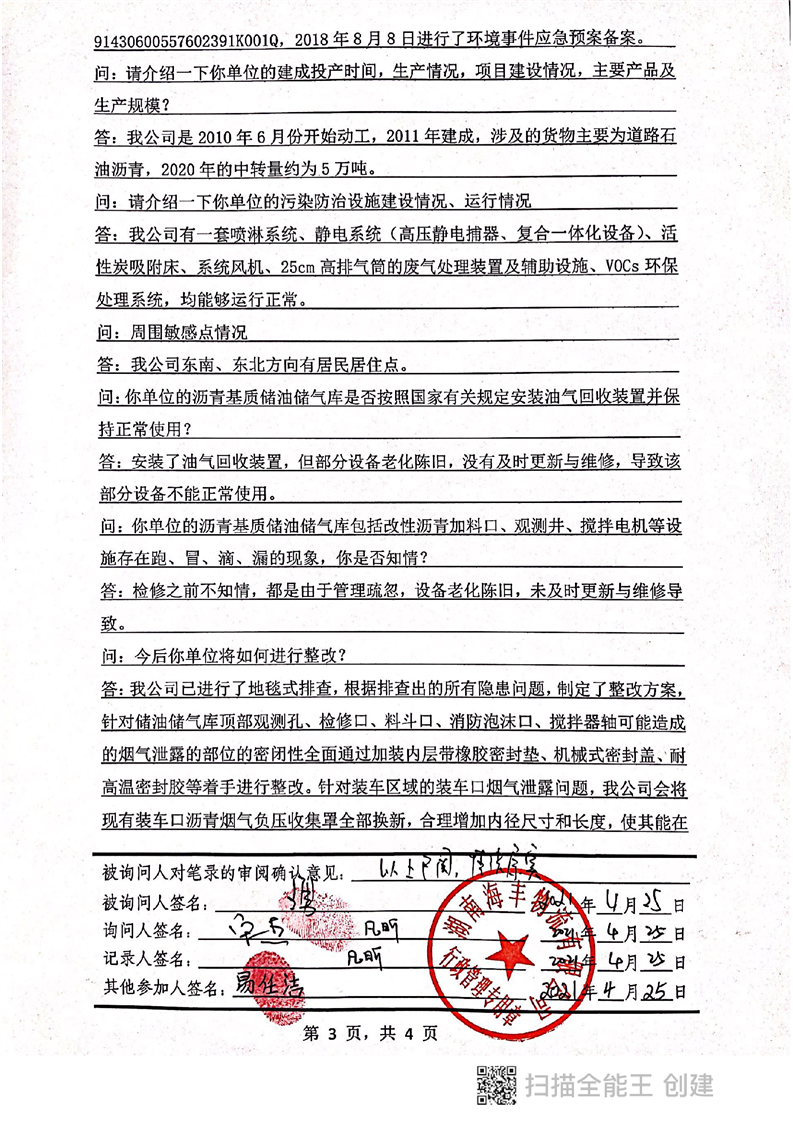 91430600557602391K001Q，2018年8月8日进行了环境事件应急预案备案。
问：请介绍一下你单位的建成投产时间，生产情况，项目建设情况，主要产品及
生产规模？
答：我公司是2010年6月份开始动工，2011年建成，涉及的货物主要为道路石
油沥青，2020年的中转量约为5万吨。
问：请介绍一下你单位的污染防治设施建设情况、运行情况
答：我公司有一套喷淋系统、静电系统（高压静电捕器、复合一体化设备）、活
性炭吸附床、系统风机、25cm高排气筒的废气处理装置及辅助设施、VOCs环保
处理系统，均能够运行正常。
问：周围敏感点情况
答：我公司东南、东北方向有居民居住点。
问：你单位的沥青基质储油储气库是否按照国家有关规定安装油气回收装置并保
持正常使用？
答：安装了油气回收装置，但部分设备老化陈旧，没有及时更新与维修，导致该
部分设备不能正常使用。
问：你单位的沥青基质储油储气库包括改性沥青加料口、观测井、搅拌电机等设
施存在跑、冒、滴、漏的现象，你是否知情？
答：检修之前不知情，都是由于管理疏忽，设备老化陈旧，未及时更新与维修导
致。
问：今后你单位将如何进行整改？
答：我公司已进行了地毯式排查，根据排查出的所有隐患问题，制定了整改方案，
针对储油储气库顶部观测孔、检修口、料斗口、消防泡沫口、搅拌器轴可能造成
的烟气泄露的部位的密闭性全面通过加装内层带橡胶密封垫、机械式密封盖、耐
高温密封胶等着手进行整改。针对装车区域的装车口烟气泄露问题，我公司会将
现有装车口沥青烟气负压收集罩全部换新，合理增加内径尺寸和长度，使其能在
被询问人对笔录的审阅确认意见：以上已阅，情况属实
被询问人签名： 2021年4月25日
询问人签名： 2021年4月25日
记录人签名： 2021年4月25日
其他参加人签名：易仕洁 2021年4月25日
湖南海丰物流有限公司
行政管理专用章
第 3 页，共 4 页
扫描全能王 创建